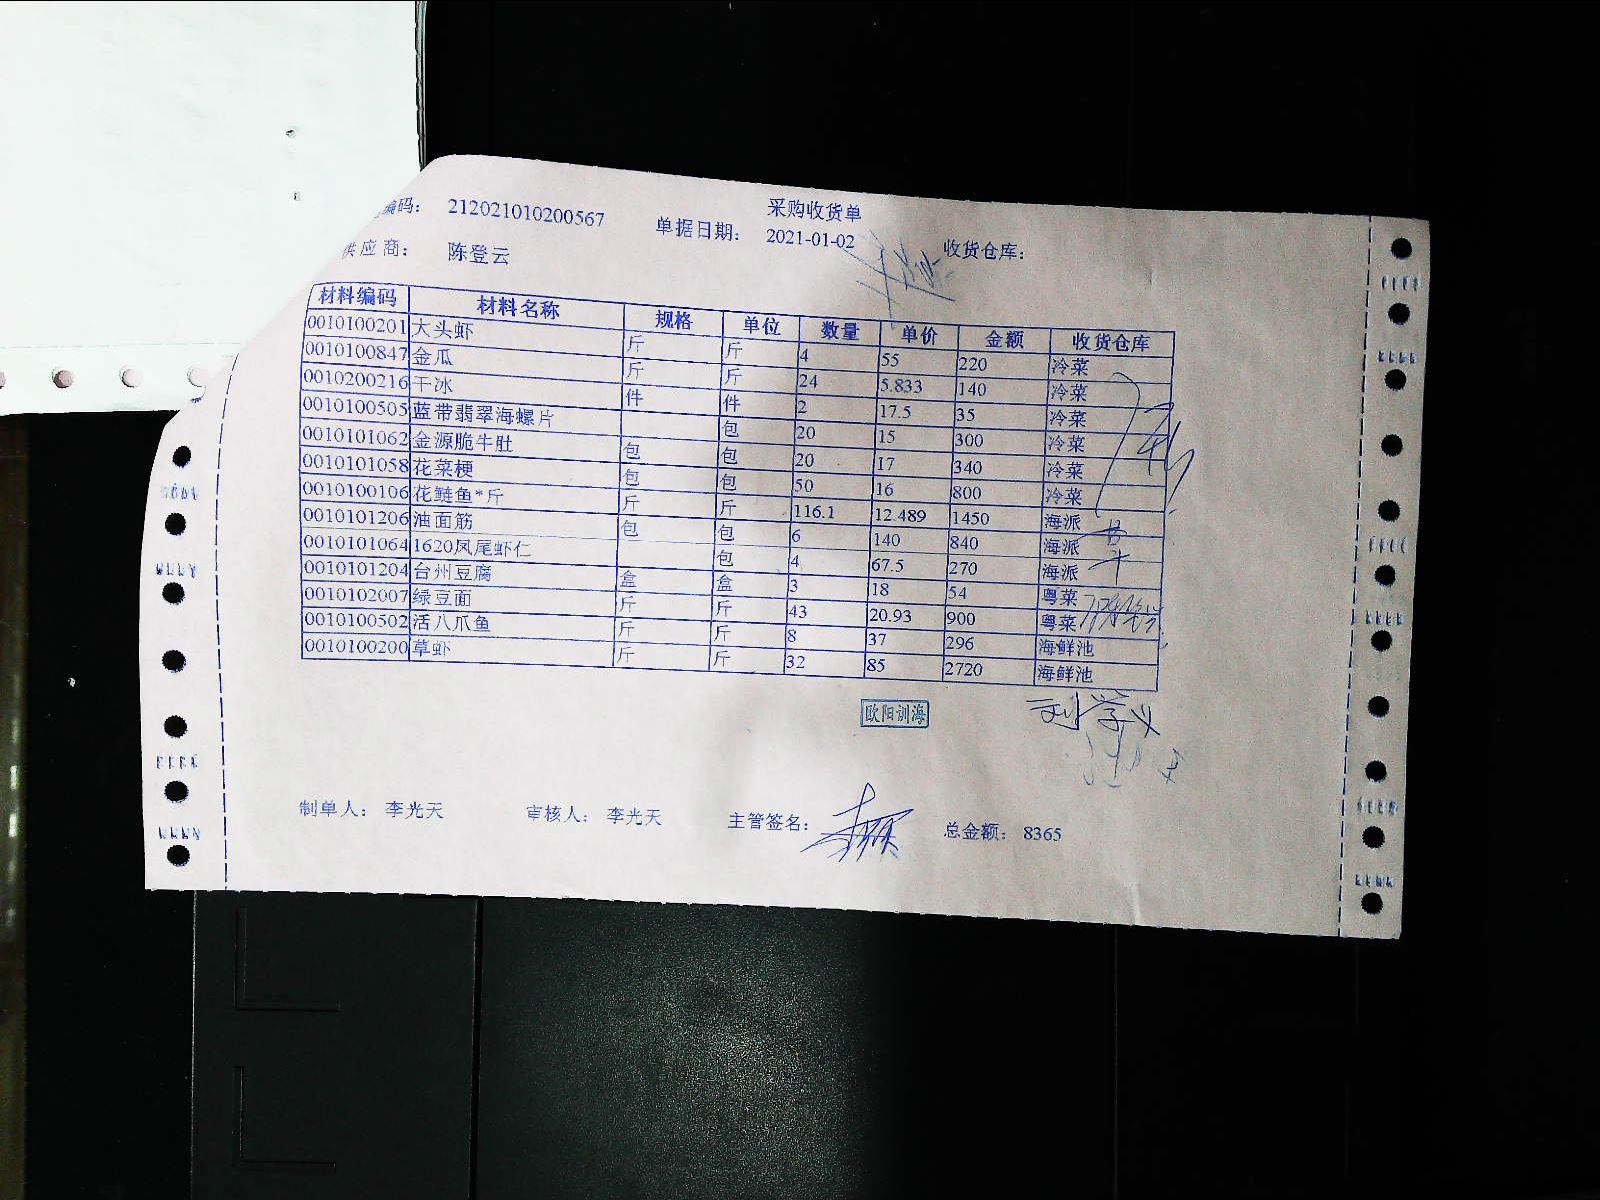 采购收货单
编码: 212021010200567 单据日期: 2021-01-02 收货仓库:
供应商: 陈登云
材料编码 材料名称 规格 单位 数量 单价 金额 收货仓库
0010100201 大头虾 斤 斤 4 55 220 冷菜
0010100847 金瓜 斤 斤 24 5.833 140 冷菜
0010200216 干冰 件 件 2 17.5 35 冷菜
0010100505 蓝带翡翠海螺片 包 20 15 300 冷菜
0010101062 金源脆牛肚 包 包 20 17 340 冷菜
0010101058 花菜梗 包 包 50 16 800 冷菜
0010100106 花鲢鱼*斤 斤 斤 116.1 12.489 1450 海派
0010101206 油面筋 包 包 6 140 840 海派
0010101064 1620凤尾虾仁 包 4 67.5 270 海派
0010101204 台州豆腐 盒 盒 3 18 54 粤菜
0010102007 绿豆面 斤 斤 43 20.93 900 粤菜
0010100502 活八爪鱼 斤 斤 8 37 296 海鲜池
0010100200 草虾 斤 斤 32 85 2720 海鲜池
欧阳训海
制单人: 李光天 审核人: 李光天 主管签名: 总金额: 8365